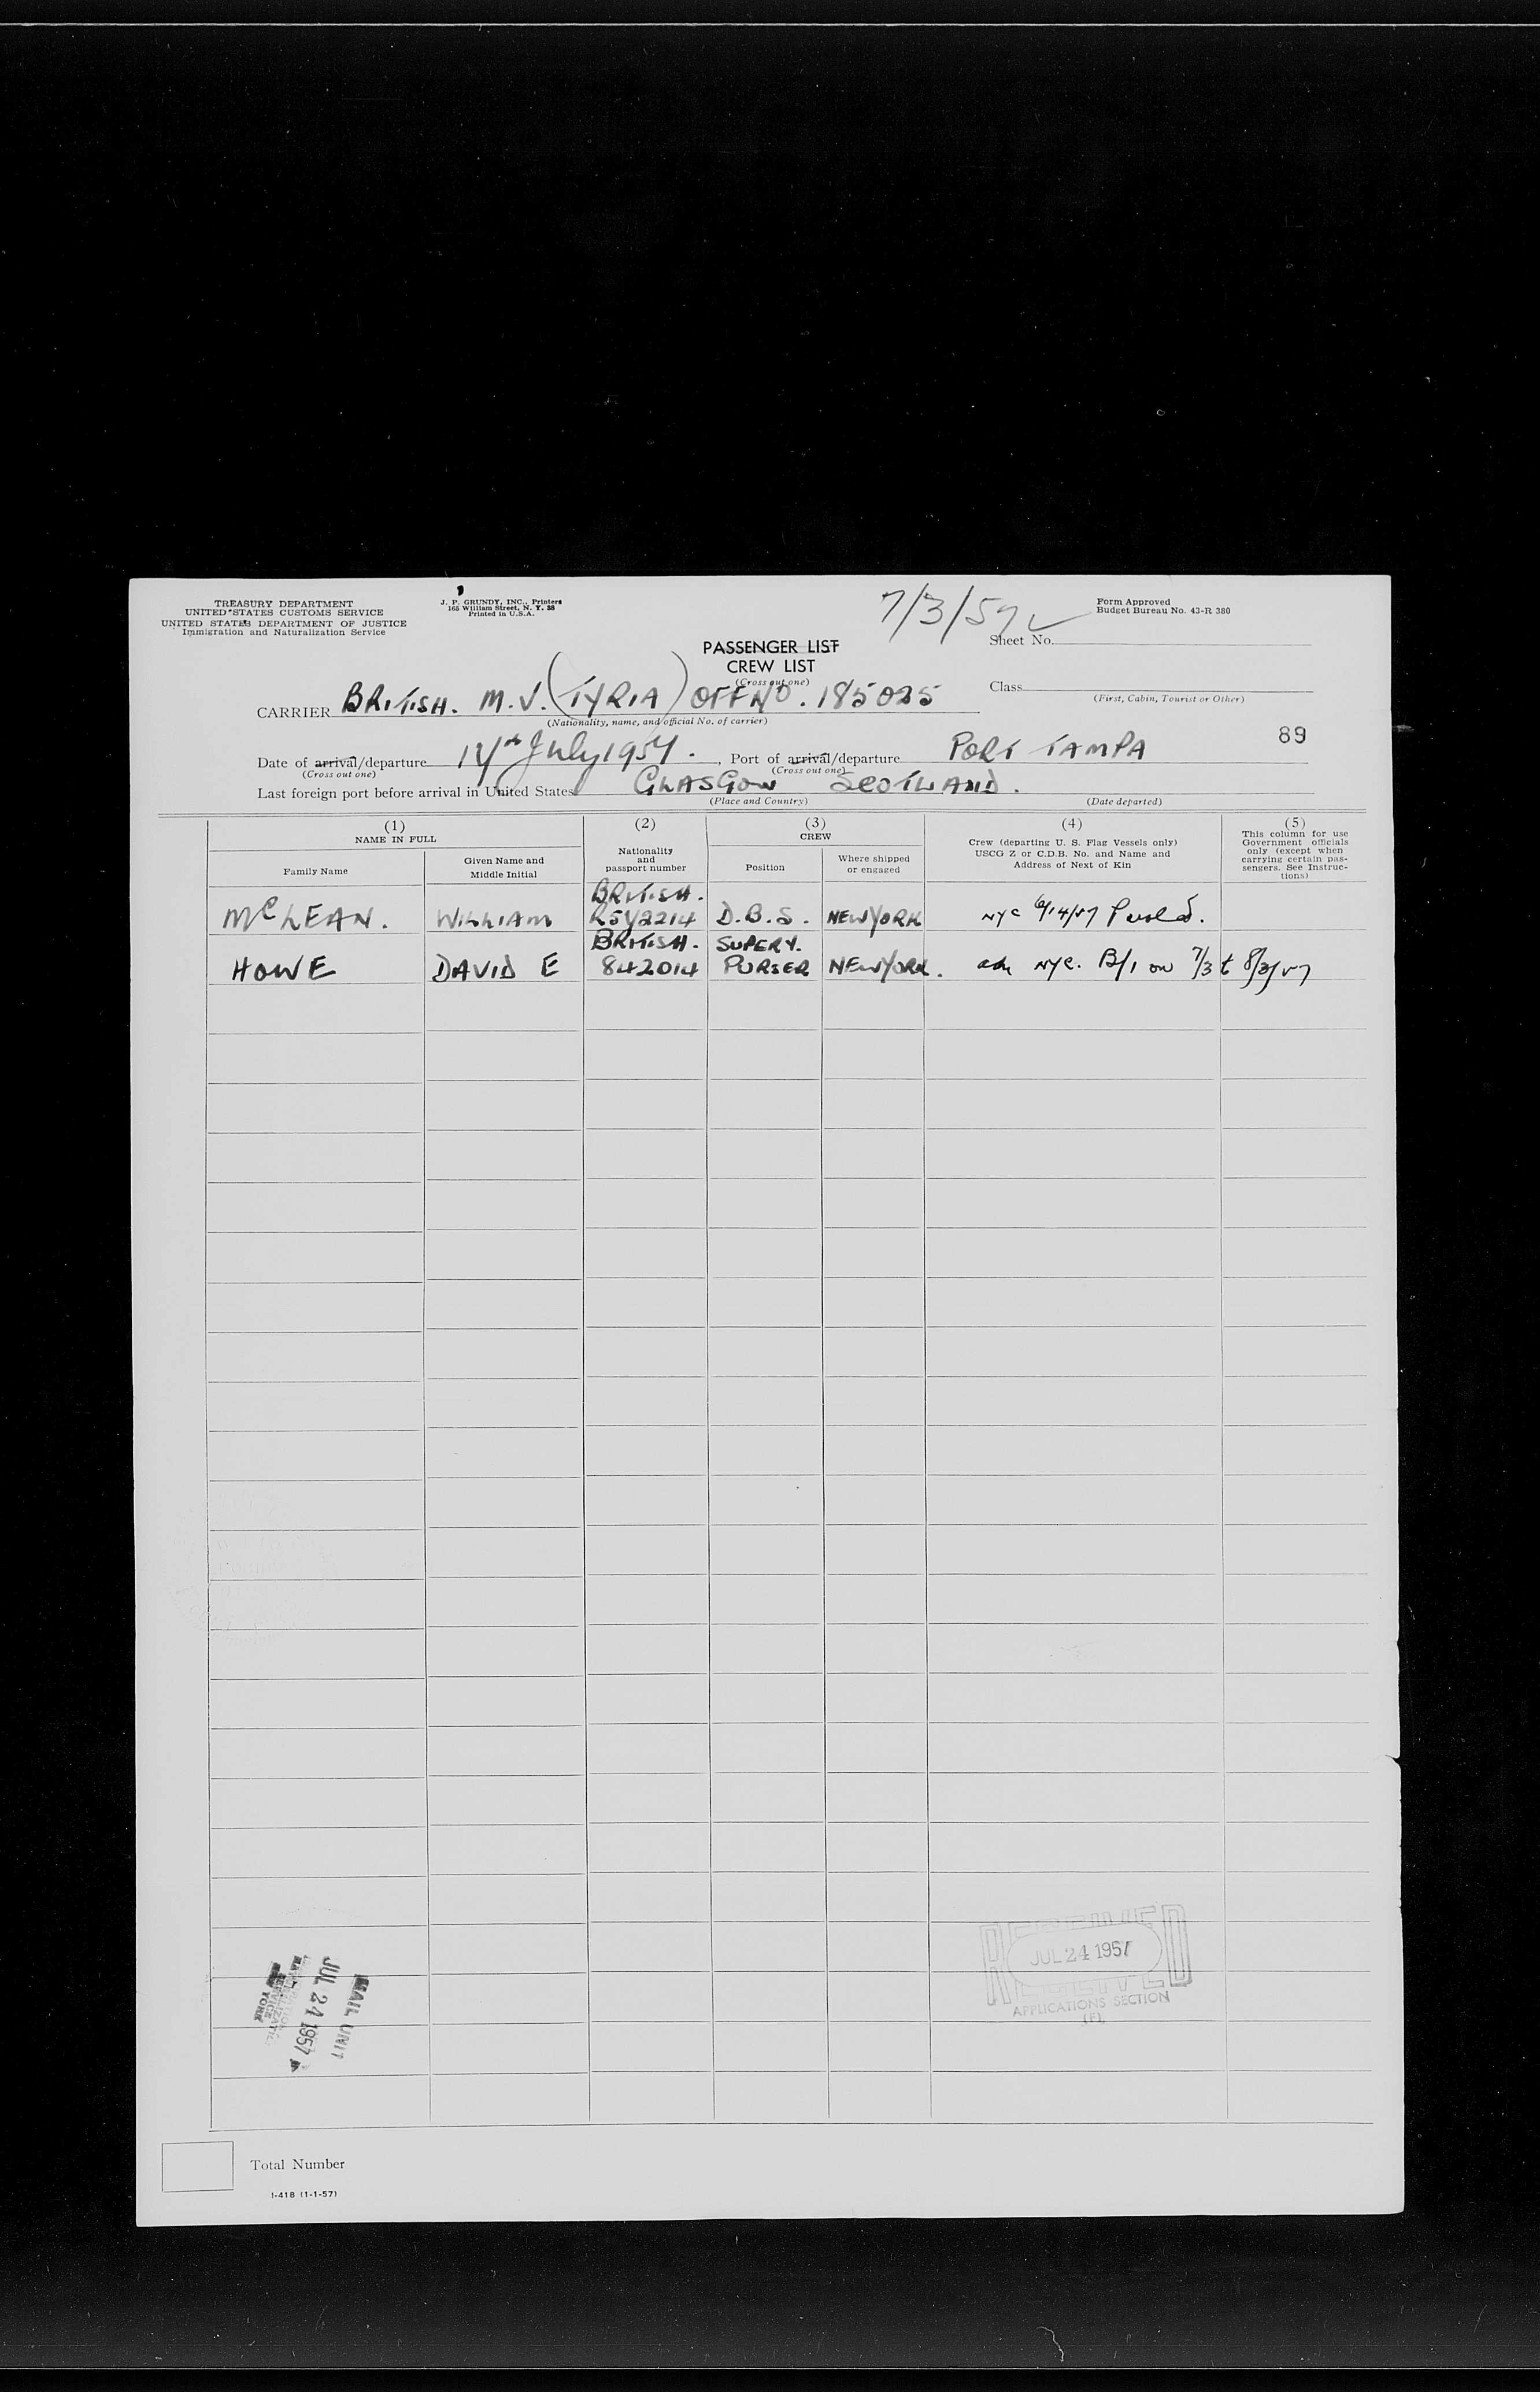 TREASURY DEPARTMENT
UNITED STATES CUSTOMS SERVICE
UNITED STATES DEPARTMENT OF JUSTICE
Immigration and Naturalization Service
J. P. GRUNDY, INC., Printers
165 William Street, N. Y. 38
Printed in U.S.A.
7/3/57
Form Approved
Budget Bureau No. 43-R 380
Sheet No.
PASSENGER LIST
CREW LIST
(Cross out one)
Class
(First, Cabin, Tourist or Other)
CARRIER BRITISH. M.V. (TYRIA) OFF NO. 185025
(Nationality, name, and official No. of carrier)
89
Date of arrival/departure 14th July 1957. , Port of arrival/departure PORT TAMPA
(Cross out one) (Cross out one)
Last foreign port before arrival in United States GLASGOW SCOTLAND.
(Place and Country) (Date departed)
(1)
NAME IN FULL
Family Name
Given Name and
Middle Initial
(2)
Nationality
and
passport number
(3)
CREW
Position
Where shipped
or engaged
(4)
Crew (departing U. S. Flag Vessels only)
USCG Z or C.D.B. No. and Name and
Address of Next of Kin
(5)
This column for use
Government officials
only (except when
carrying certain pas-
sengers. See Instruc-
tions)
BRITISH.
McLEAN. WILLIAM R542214 D.B.S. NEW YORK NYC 6/14/57
BRITISH. SUPERY.
HOWE DAVID E 842014 PURSER NEW YORK. adm NYC. B/1 on 7/3 t 8/2/57
RECEIVED
JUL 24 1957
APPLICATIONS SECTION
(F)
MAIL UNIT
JUL 24 1957
Total Number
I-418 (1-1-57)